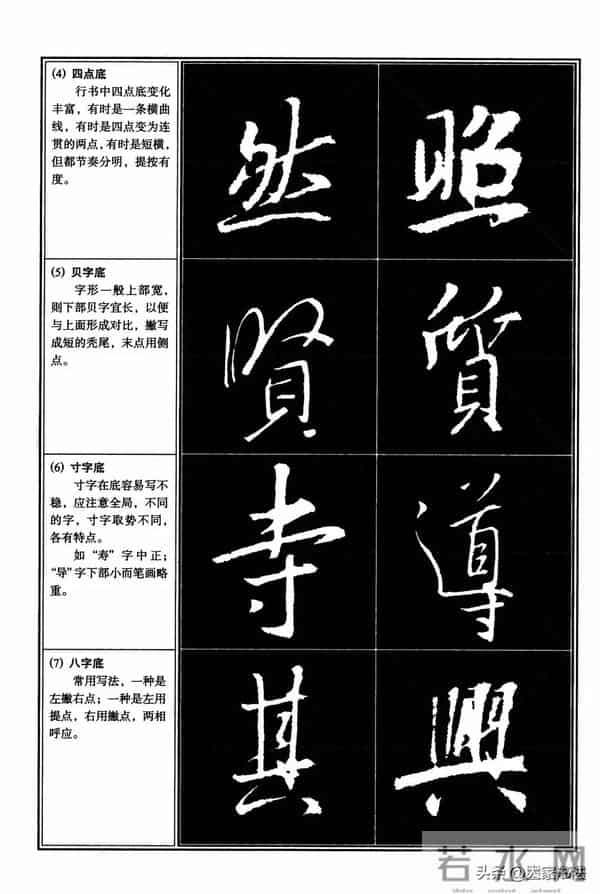 (4) 四点底
行书中四点底变化
丰富，有时是一条横曲
线，有时是四点变为连
贯的两点，有时是短横，
但都节奏分明，提按有
度。
然 照
(5) 贝字底
字形一般上部宽，
则下部贝字宜长，以便
与上面形成对比，撇写
成短的秃尾，末点用侧
点。
賢 質
(6) 寸字底
寸字在底容易写不
稳，应注意全局，不同
的字，寸字取势不同，
各有特点。
如“寿”字中正；
“导”字下部小而笔画略
重。
寿 導
(7) 八字底
常用写法，一种是
左撇右点；一种是左用
提点，右用撇点，两相
呼应。
其 興
若水网
头条@